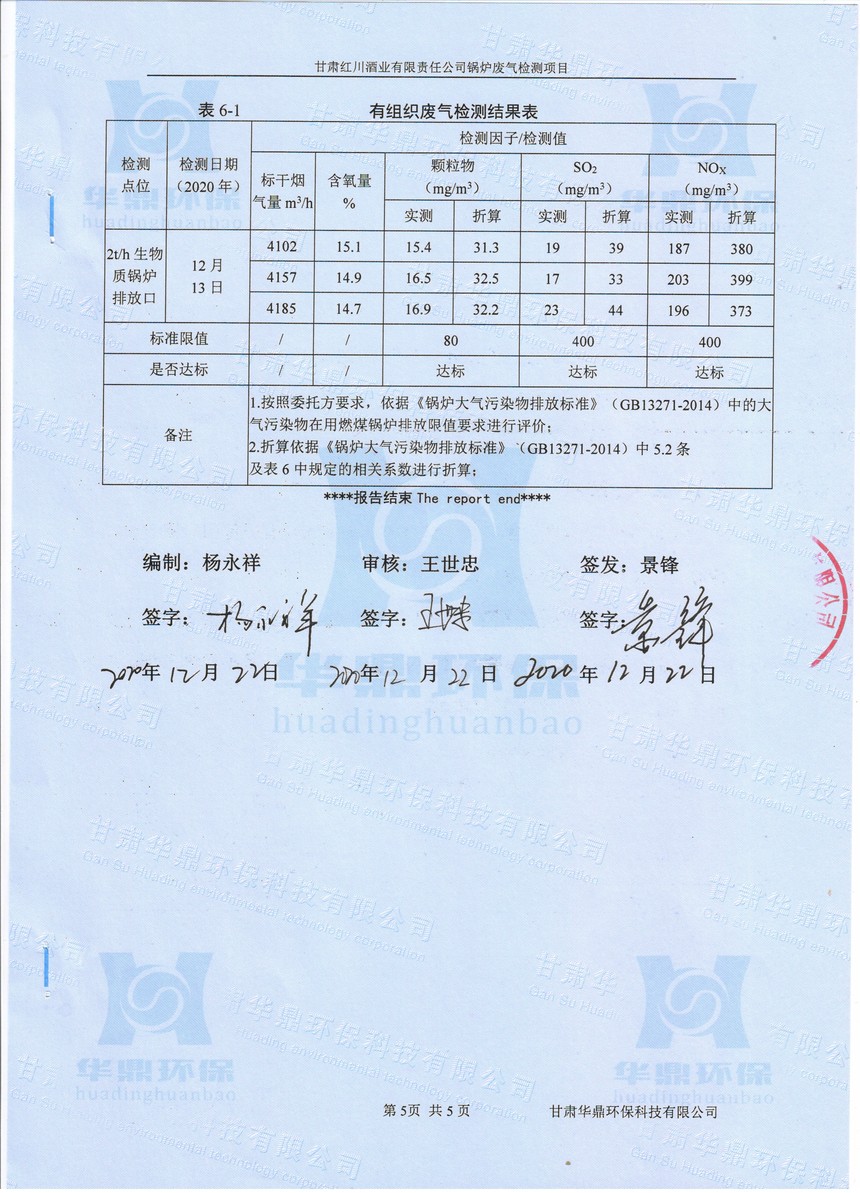 甘肃红川酒业有限责任公司锅炉废气检测项目
表 6-1 有组织废气检测结果表
检测点位 检测日期（2020 年） 检测因子/检测值
标干烟气量 m³/h 含氧量 % 颗粒物（mg/m³） SO₂（mg/m³） NOX（mg/m³）
实测 折算 实测 折算 实测 折算
2t/h 生物质锅炉排放口 12 月 13 日
4102 15.1 15.4 31.3 19 39 187 380
4157 14.9 16.5 32.5 17 33 203 399
4185 14.7 16.9 32.2 23 44 196 373
标准限值 / / 80 400 400
是否达标 / / 达标 达标 达标
备注
1.按照委托方要求，依据《锅炉大气污染物排放标准》（GB13271-2014）中的大
气污染物在用燃煤锅炉排放限值要求进行评价；
2.折算依据《锅炉大气污染物排放标准》（GB13271-2014）中 5.2 条
及表 6 中规定的相关系数进行折算；
****报告结束 The report end****
编制：杨永祥 审核：王世忠 签发：景锋
签字：杨永祥 签字：王世忠 签字：景锋
2020年 12月 22日 2020年 12 月 22 日 2020 年 12 月 22 日
华鼎环保
huadinghuanbao
甘肃华鼎环保科技有限公司
Gan Su Huading environmental technology corporation
第 5页 共 5 页 甘肃华鼎环保科技有限公司